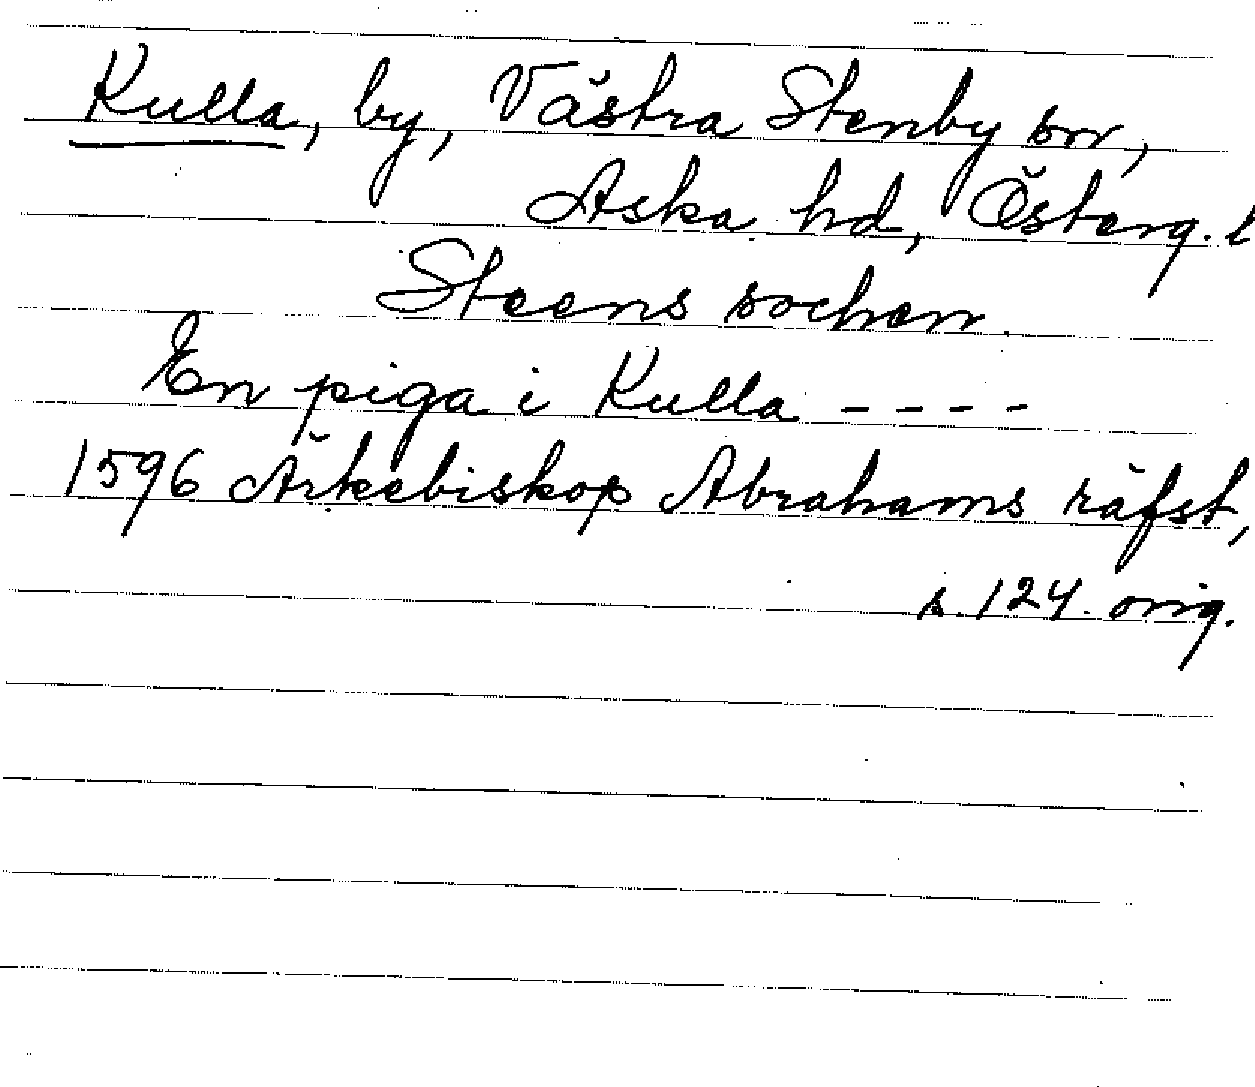 Kulla, by, Västra Stenby sn,
Aska hd, Österg. l
Steens sochen
En piga i Kulla - - - -
1596 Ärkebiskop Abrahams räfst,
s. 124 orig.